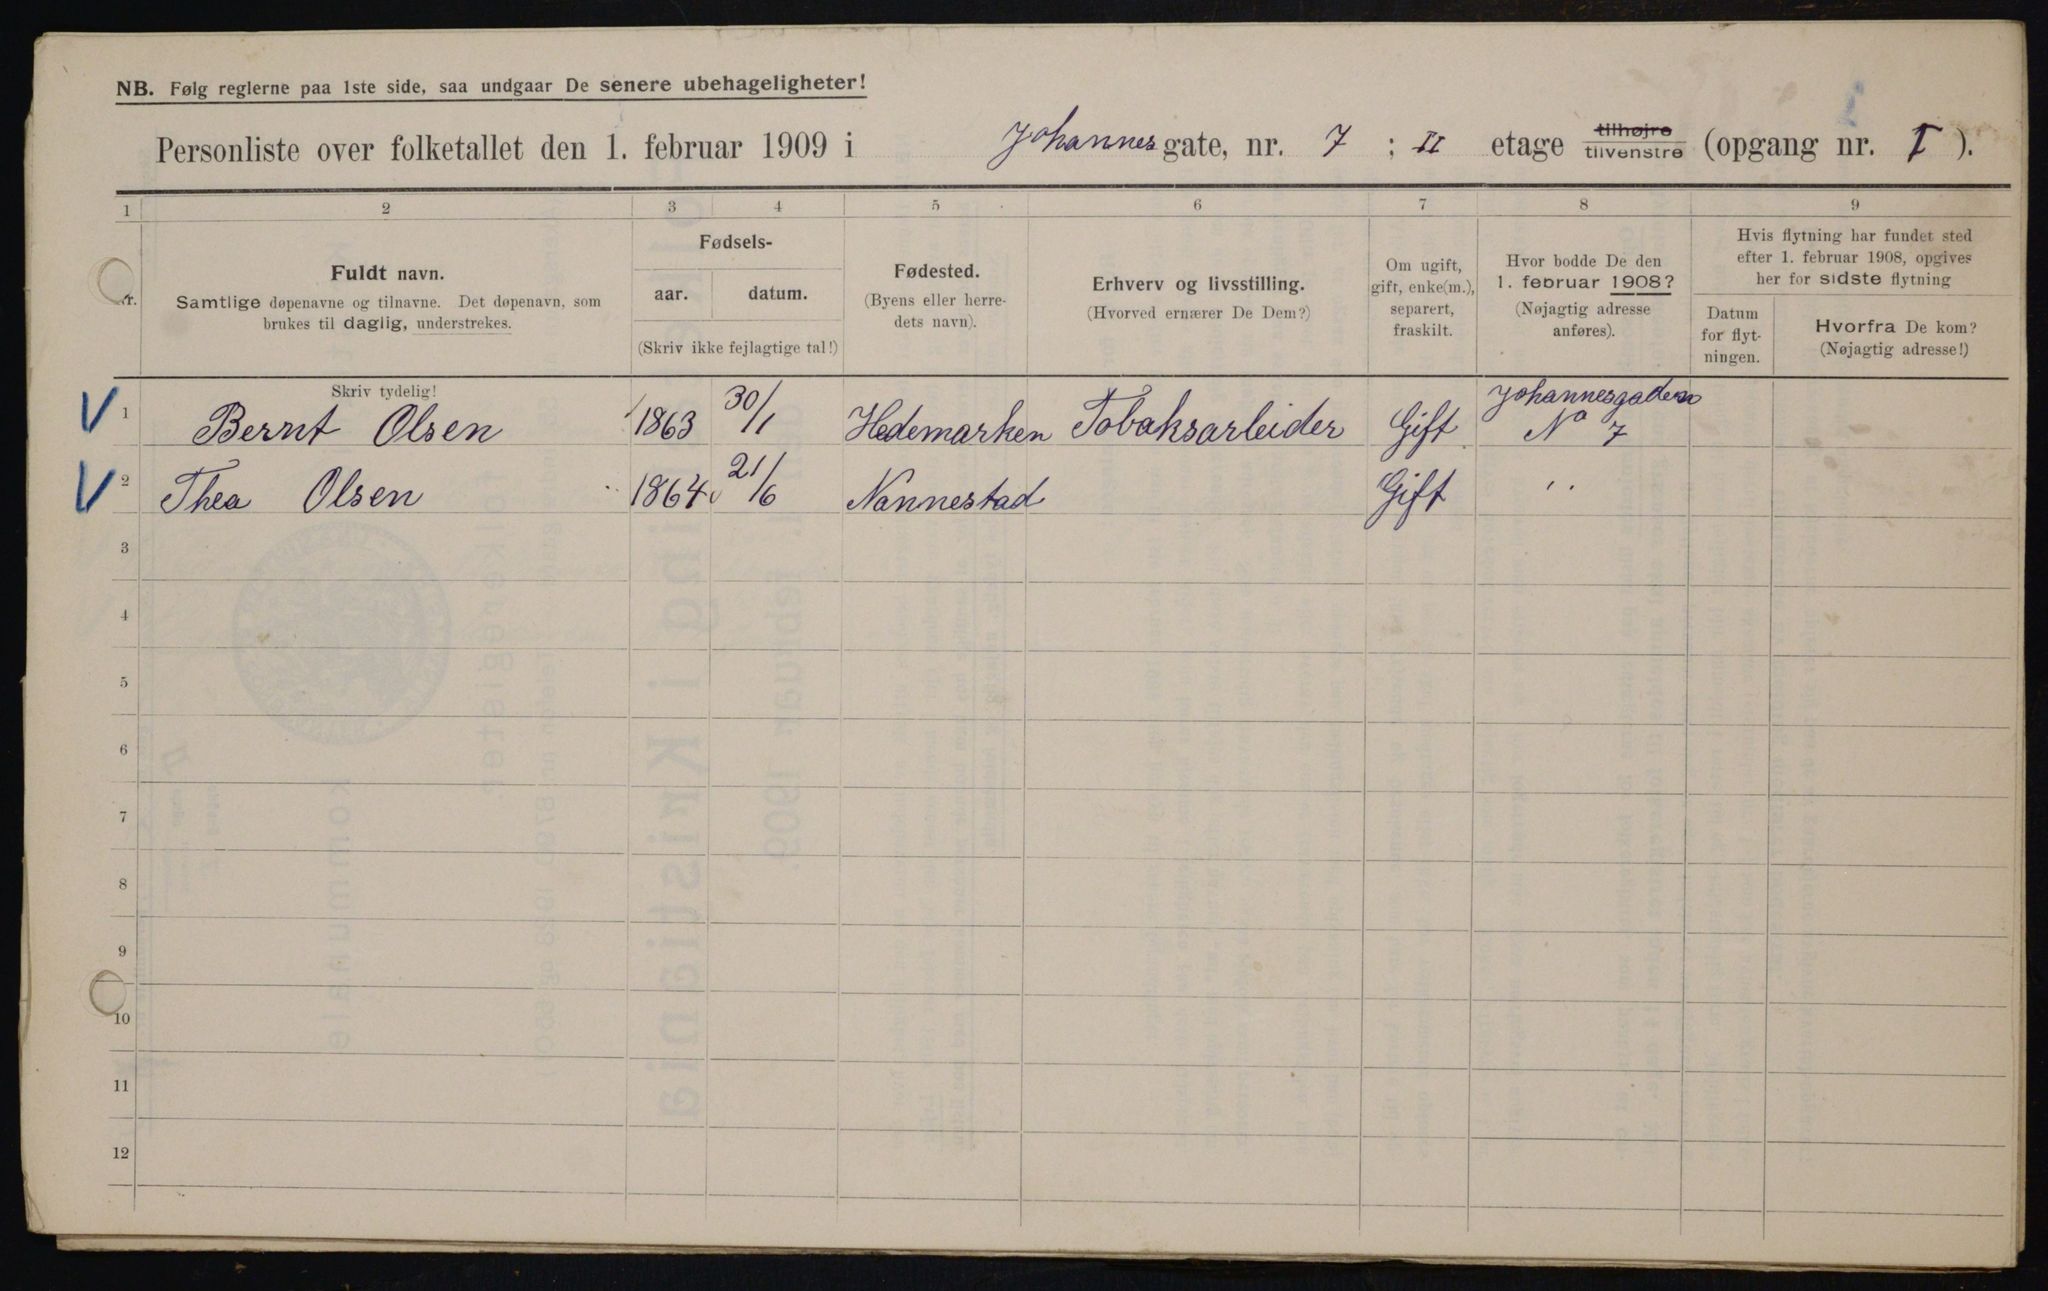 NB. Følg reglerne paa 1ste side, saa undgaar De senere ubehageligheter!
Personliste over folketallet den 1. februar 1909 i Johannes gate, nr. 7 ; II etage tilhøjre tilvenstre (opgang nr. I ).
1 2 3 4 5 6 7 8 9
Nr.
Fuldt navn.
Samtlige døpenavne og tilnavne. Det døpenavn, som
brukes til daglig, understrekes.
Fødsels-
aar. datum.
(Skriv ikke fejlagtige tal!)
Fødested.
(Byens eller herre-
dets navn).
Erhverv og livsstilling.
(Hvorved ernærer De Dem?)
Om ugift,
gift, enke(m.),
separert,
fraskilt.
Hvor bodde De den
1. februar 1908?
(Nøjagtig adresse
anføres).
Hvis flytning har fundet sted
efter 1. februar 1908, opgives
her for sidste flytning
Datum
for flyt-
ningen.
Hvorfra De kom?
(Nøjagtig adresse!)
Skriv tydelig!
V 1 Bernt Olsen 1863 30/1 Hedemarken Tobaksarleider Gift Johannesgaden
No 7
V 2 Thea Olsen 1864 21/6 Nannestad Gift ,,
3
4
5
6
7
8
9
10
11
12